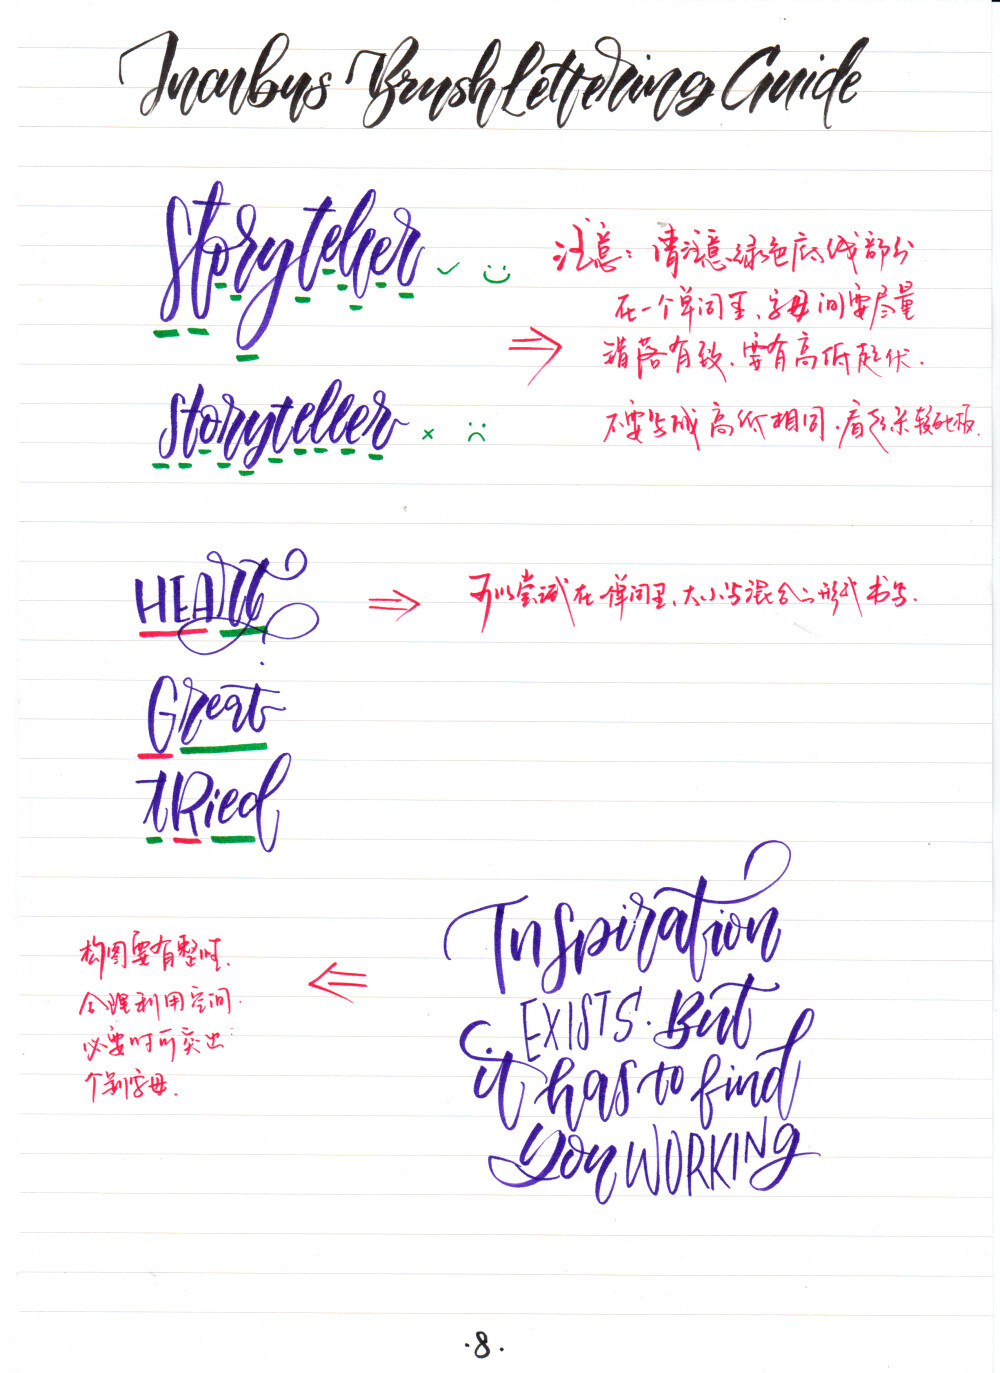 Incubus Brush Lettering Guide
storyteller ✓
注意：请注意绿色底线部分
在一个单词里、字母间要尽量
错落有致、要有高低起伏.
storyteller ×
不要写成高低相同.看起来较死板.
HEArt
可以尝试在一单词里、大小写混合的形式书写.
Great
tRied
Inspiration
EXISTS. But
it has to find
you WORKING
构图要有整性.
合理利用空间.
必要时可突出
个别字母.
·8·